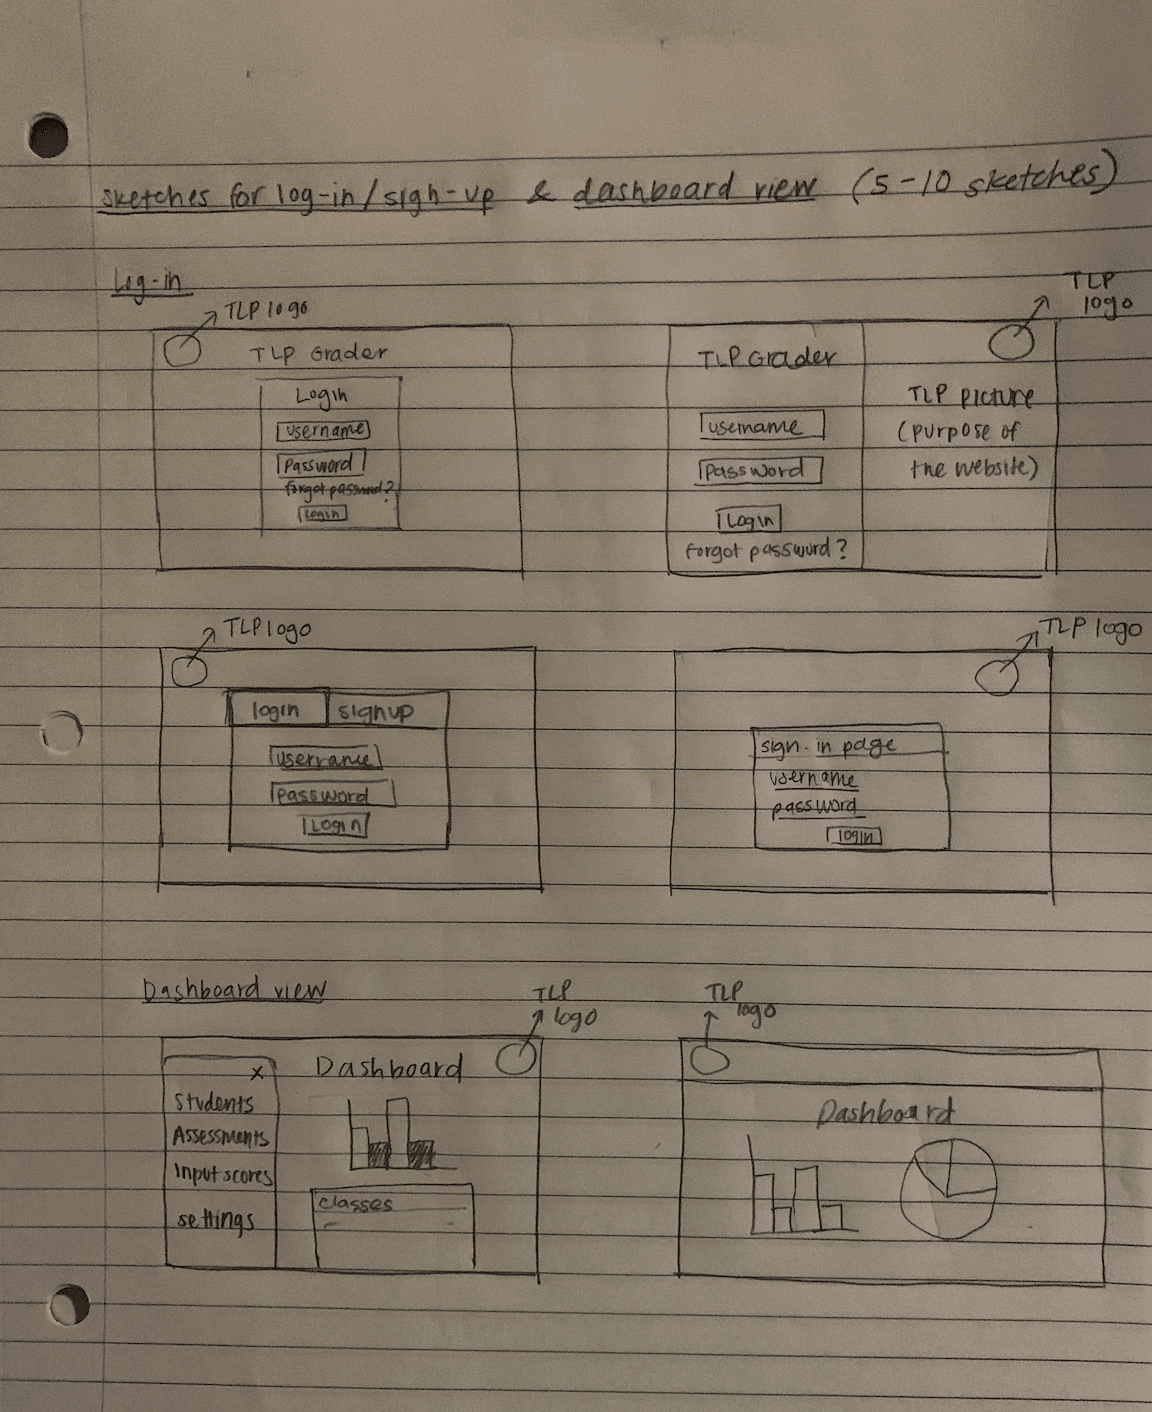 sketches for log-in/sign-up & dashboard view (5-10 sketches)
Log-in
TLP logo
TLP Grader
Login
username
Password
forgot password?
Login
TLP
logo
TLP Grader
username
password
Login
forgot password?
TLP picture
(purpose of
the website)
TLP logo
login signup
username
password
Login
TLP logo
sign-in page
username
password
login
Dashboard view
TLP
logo
Dashboard
x
Students
Assessments
Input scores
settings
classes
TLP
logo
Dashboard